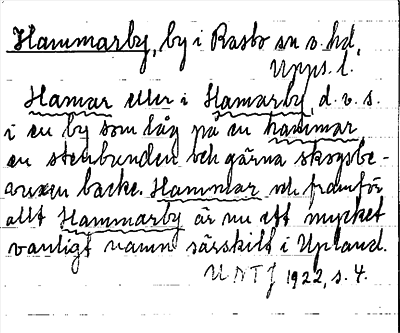 Hammarby, by i Rasbo sn o. hd,
Upps. l.
Hamar eller i Hamarby, d. v. s.
i en by som låg på en hammar,
en stenbunden och gärna skogsbe-
vuxen backe. Hammar och framför
allt Hammarby är nu ett mycket
vanligt namn särskilt i Upland.
UNTJ 1922, s. 4.